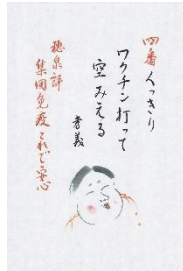 四番 くっきり
ワクチン打って
空みえる
孝義
穂泉評
集団免疫これで安心